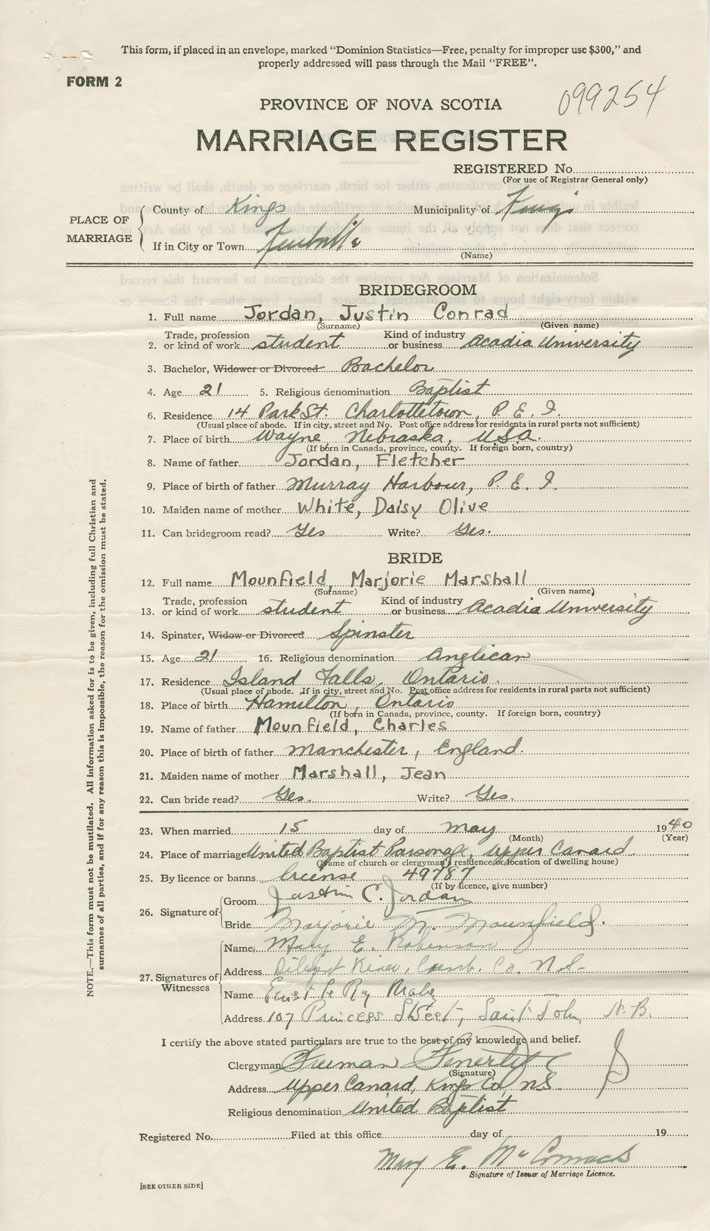 This form, if placed in an envelope, marked "Dominion Statistics—Free, penalty for improper use $300," and
properly addressed will pass through the Mail "FREE".
FORM 2
099254
PROVINCE OF NOVA SCOTIA
MARRIAGE REGISTER
REGISTERED No.
(For use of Registrar General only)
PLACE OF MARRIAGE
County of Kings Municipality of Kings
If in City or Town
(Name)
BRIDEGROOM
1. Full name Jordan, Justin Conrad
(Surname) (Given name)
2. Trade, profession or kind of work student Kind of industry or business Acadia University
3. Bachelor, Widower or Divorced Bachelor
4. Age 21 5. Religious denomination Baptist
6. Residence 14 Park St. Charlottetown, P. E. I.
(Usual place of abode. If in city, street and No. Post office address for residents in rural parts not sufficient)
7. Place of birth Wayne, Nebraska, USA.
(If born in Canada, province, county. If foreign born, country)
8. Name of father Jordan, Fletcher
9. Place of birth of father Murray Harbour, P. E. I.
10. Maiden name of mother White, Daisy Olive
11. Can bridegroom read? Yes Write? Yes.
BRIDE
12. Full name Mounfield, Marjorie Marshall
(Surname) (Given name)
13. Trade, profession or kind of work student Kind of industry or business Acadia University
14. Spinster, Widow or Divorced Spinster
15. Age 21 16. Religious denomination Anglican
17. Residence Island Falls, Ontario.
(Usual place of abode. If in city, street and No. Post office address for residents in rural parts not sufficient)
18. Place of birth Hamilton, Ontario
(If born in Canada, province, county. If foreign born, country)
19. Name of father Mounfield, Charles
20. Place of birth of father Manchester, England.
21. Maiden name of mother Marshall, Jean
22. Can bride read? Yes. Write? Yes.
23. When married 15 day of May 1940
(Month) (Year)
24. Place of marriage United Baptist Parsonage, Upper Canard
(Name of church or clergyman's residence or location of dwelling house)
25. By licence or banns license 49787
(If by licence, give number)
26. Signature of
Groom Justin C. Jordan
Bride Marjorie M. Mounfield.
27. Signatures of Witnesses
Name Mary E. Robinson
Address Diligent River, Cumb. Co. N.S.
Name
Address 107 Princess Street, Saint John, N.B.
I certify the above stated particulars are true to the best of my knowledge and belief.
Clergyman Freeman Fenerty
(Signature)
Address Upper Canard, Kings Co., N.S.
Religious denomination United Baptist
Registered No. Filed at this office day of 19
Mary E. McCormack
Signature of Issuer of Marriage Licence.
[SEE OTHER SIDE]
NOTE.—This form must not be mutilated. All information asked for is to be given, including full Christian and
surnames of all parties, and if for any reason this is impossible, the reason for the omission must be stated.